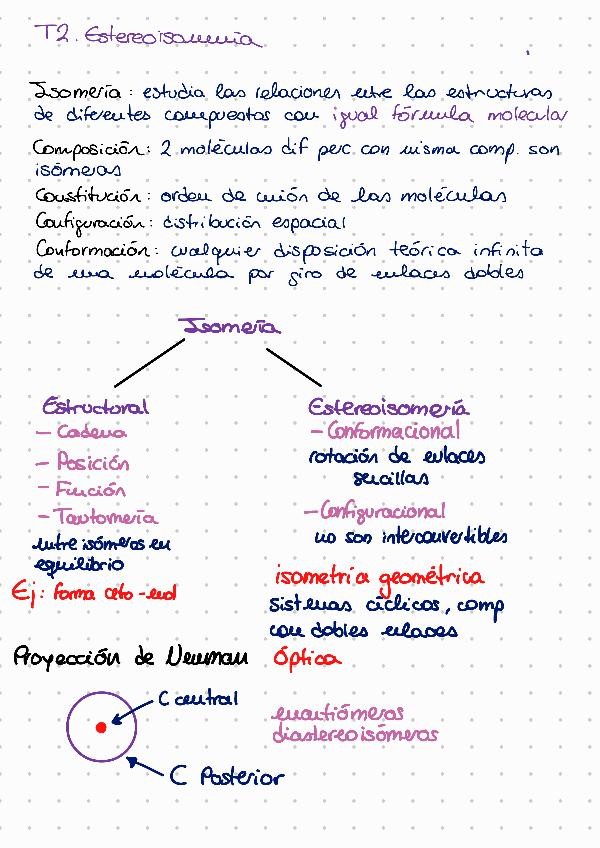 T2. Estereoisomería
Isomería: estudia las relaciones entre las estructuras
de diferentes compuestos con igual fórmula molecular
Composición: 2 moléculas dif pero con misma comp. son
isómeros
Constitución: orden de unión de las moléculas
Configuración: distribución espacial
Conformación: cualquier disposición teórica infinita
de una molécula por giro de enlaces dobles
Isomería
Estructural
- Cadena
- Posición
- Función
- Tautomería
entre isómeros en
equilibrio
Ej: forma ceto-enol
Estereoisomería
- Conformacional
rotación de enlaces
sencillas
- Configuracional
no son interconvertibles
isometría geométrica
sistemas cíclicos, comp
con dobles enlaces
Óptica
enantiómeros
diastereoisómeros
Proyección de Newman
C central
C Posterior